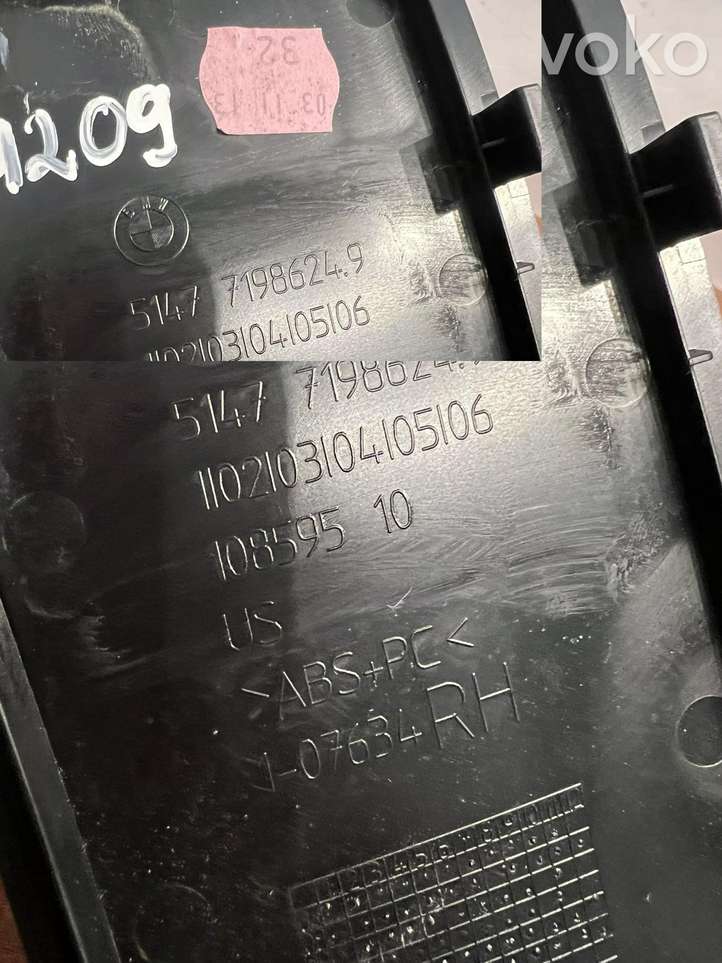 voko
32
03 11 13
1209
BMW
5147 7198624.9
1102103104105106
5147 7198624.9
1102103104105106
108595 10
US
>ABS+PC<
1-07634 RH